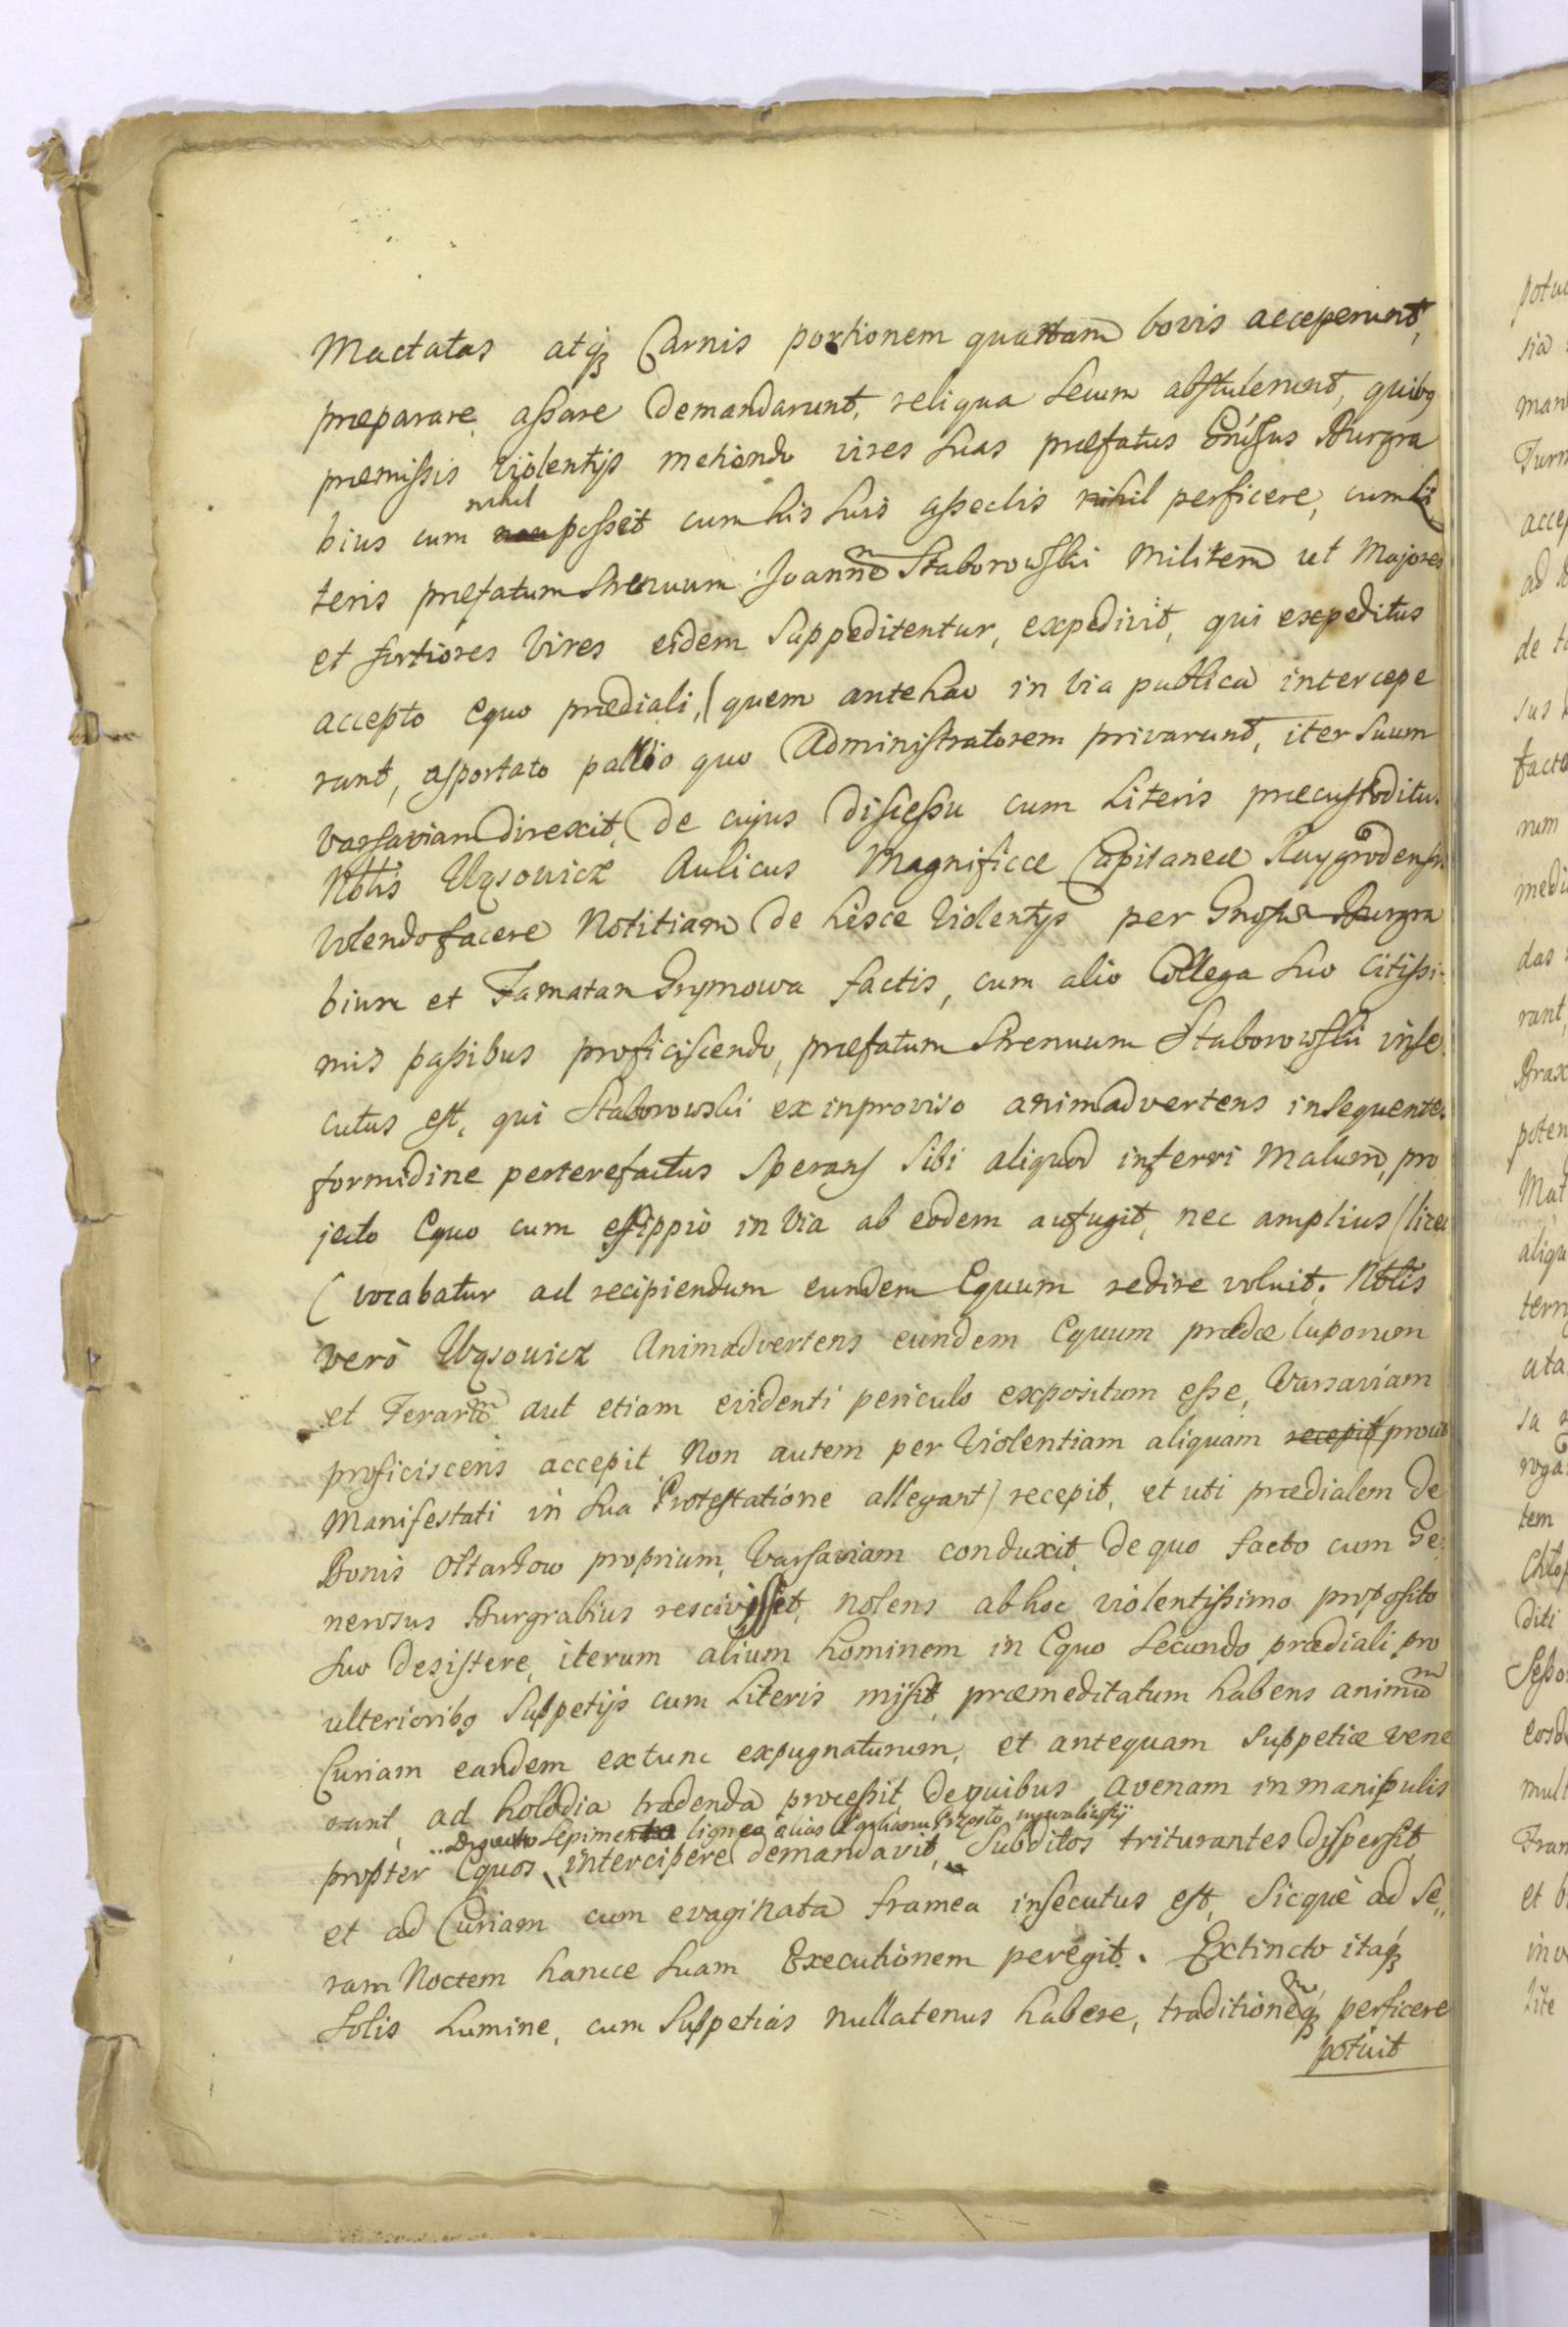 Mactatas atq; Carnis portionem quartam bovis acceperunt,
præparare, assare demandarunt, reliqua secum abstulerunt, quibg
præmissis Violentijs metiendo vires suas præfatus Gnrsus Burgra
bius cum nihil posset cum his suis asseclis nihil perficere, cum li
teris præfatum Strenuum Joannem Staborowski Militem ut Majores
et fortiores Vires eidem Suppeditentur, expedivit, qui expeditus
accepto Equo prædiali, (quem antehac in via publica intercepe
rant, asportato pallio quo Administratorem privarunt, iter Suum
Varsaviam direxit, De cujus Discessu cum Literis præcustoditus
Nblis Wąsowicz Aulicus Magnificæ Capitaneæ Raygrodensis
Volendo facere Notitiam De hisce Violentijs per Gnosum Burgra
bium et Famatam Grymowa factis, cum alio Collega suo Citissi-
mis passibus proficiscendo, præfatum Strenuum Staborowski inse
cutus est, qui Staborowski ex inproviso animadvertens insequentes
formidine perterefactus Sperans Sibi aliquod inferri Malum, pro
jecto Equo cum essippio in Via ab eodem aufugit, nec amplius (licet
(vocabatur ad recipiendum eundem Equum redire voluit. Nblis
Verò Wąsowicz Animadvertens eundem Equum prædæ Luporum
et Ferarum aut etiam evidenti periculo expositum esse, Varsaviam
proficiscens accepit, Non autem per Violentiam aliquam recepit (prout
Manifestati in Sua Protestatione allegant) recepit, et uti prædialem de
Bonis Ołtarzow proprium, Varsaviam conduxit, De quo facto cum Ge
nerosus Burgrabius rescivisset, nolens ab hoc violentissimo proposito
Suo Desistere, iterum alium hominem in Equo Secundo prædiali pro
ulterioribg Suppetijs cum Literis misit, præmeditatum habens animum
Curiam eandem extunc expugnaturum, et antequam Suppetiæ vene
rant, ad holodia tradenda processit, De quibus Avenam in manipulis
Sepimenta lignea alias
propter Equos intercipere demandavit, Subditos triturantes Dispersit,
et ad Curiam cum evaginata framea insecutus est, Sicque ad Se,,
ram Noctem hancce Suam Executionem peregit. Extincto itaq;
Solis Lumine, cum Suppetias nullatenus habere, traditionemq; perficere
potuit